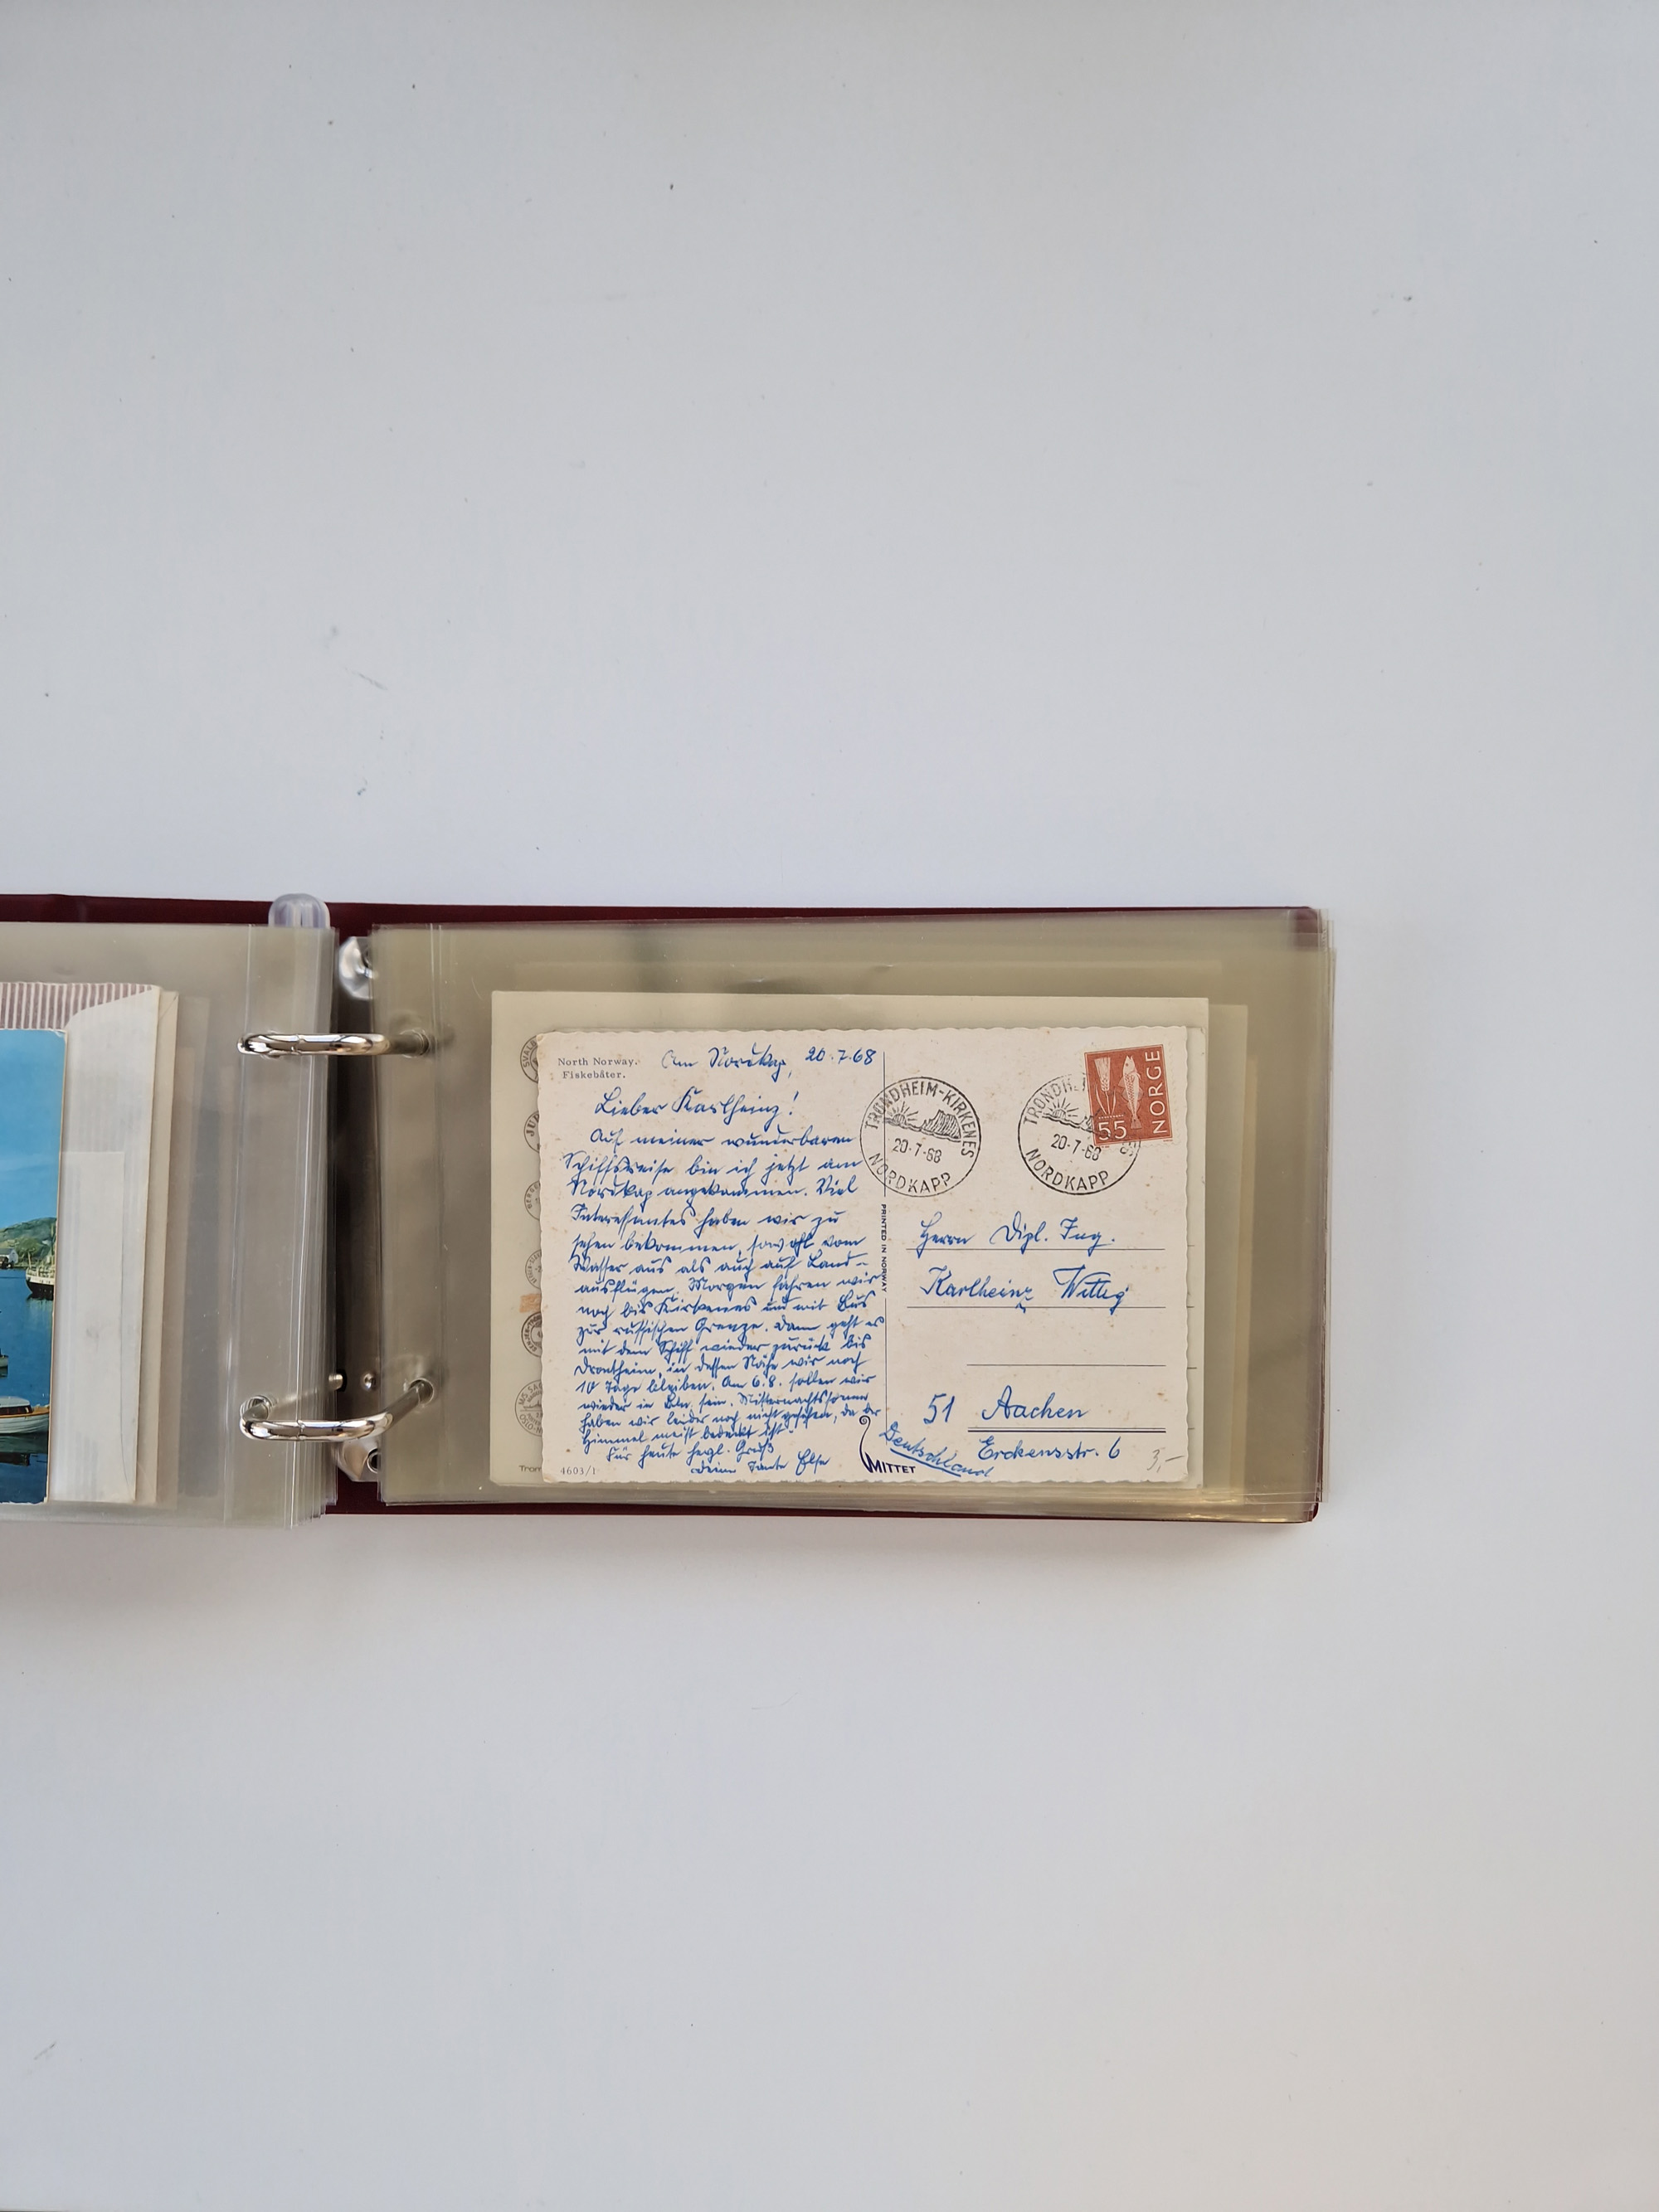 North Norway.
Fiskebåter.
Am Nordkap, 20.7.68
Lieber Karlheinz!
Auf meiner wunderbaren
Schiffsreise bin ich jetzt am
Nordkap angekommen. Viel
Interessantes haben wir zu
sehen bekommen, sowohl vom
Wasser aus als auch auf Land-
ausflügen. Morgen fahren wir
noch bis Kirkenes und mit Bus
zur russischen Grenze. Dann geht es
mit dem Schiff wieder zurück bis
Drontheim, in dessen Nähe wir noch
10 Tage bleiben. Am 6.8. sollen wir
wieder in Bln. sein. Mitternachtssonne
haben wir leider noch nicht gesehen, da der
Himmel meist bedeckt ist.
Für heute herzl. Gruß
Deine Tante Else
4603/1
PRINTED IN NORWAY
MITTET
TRONDHEIM-KIRKENES
20-7-68
NORDKAPP
TRONDHE
20-7-68
NORDKAPP
55
NORGE
Herrn Dipl. Ing.
Karlheinz Wittig
51 Aachen
Erckensstr. 6
Deutschland
3,-
Trom